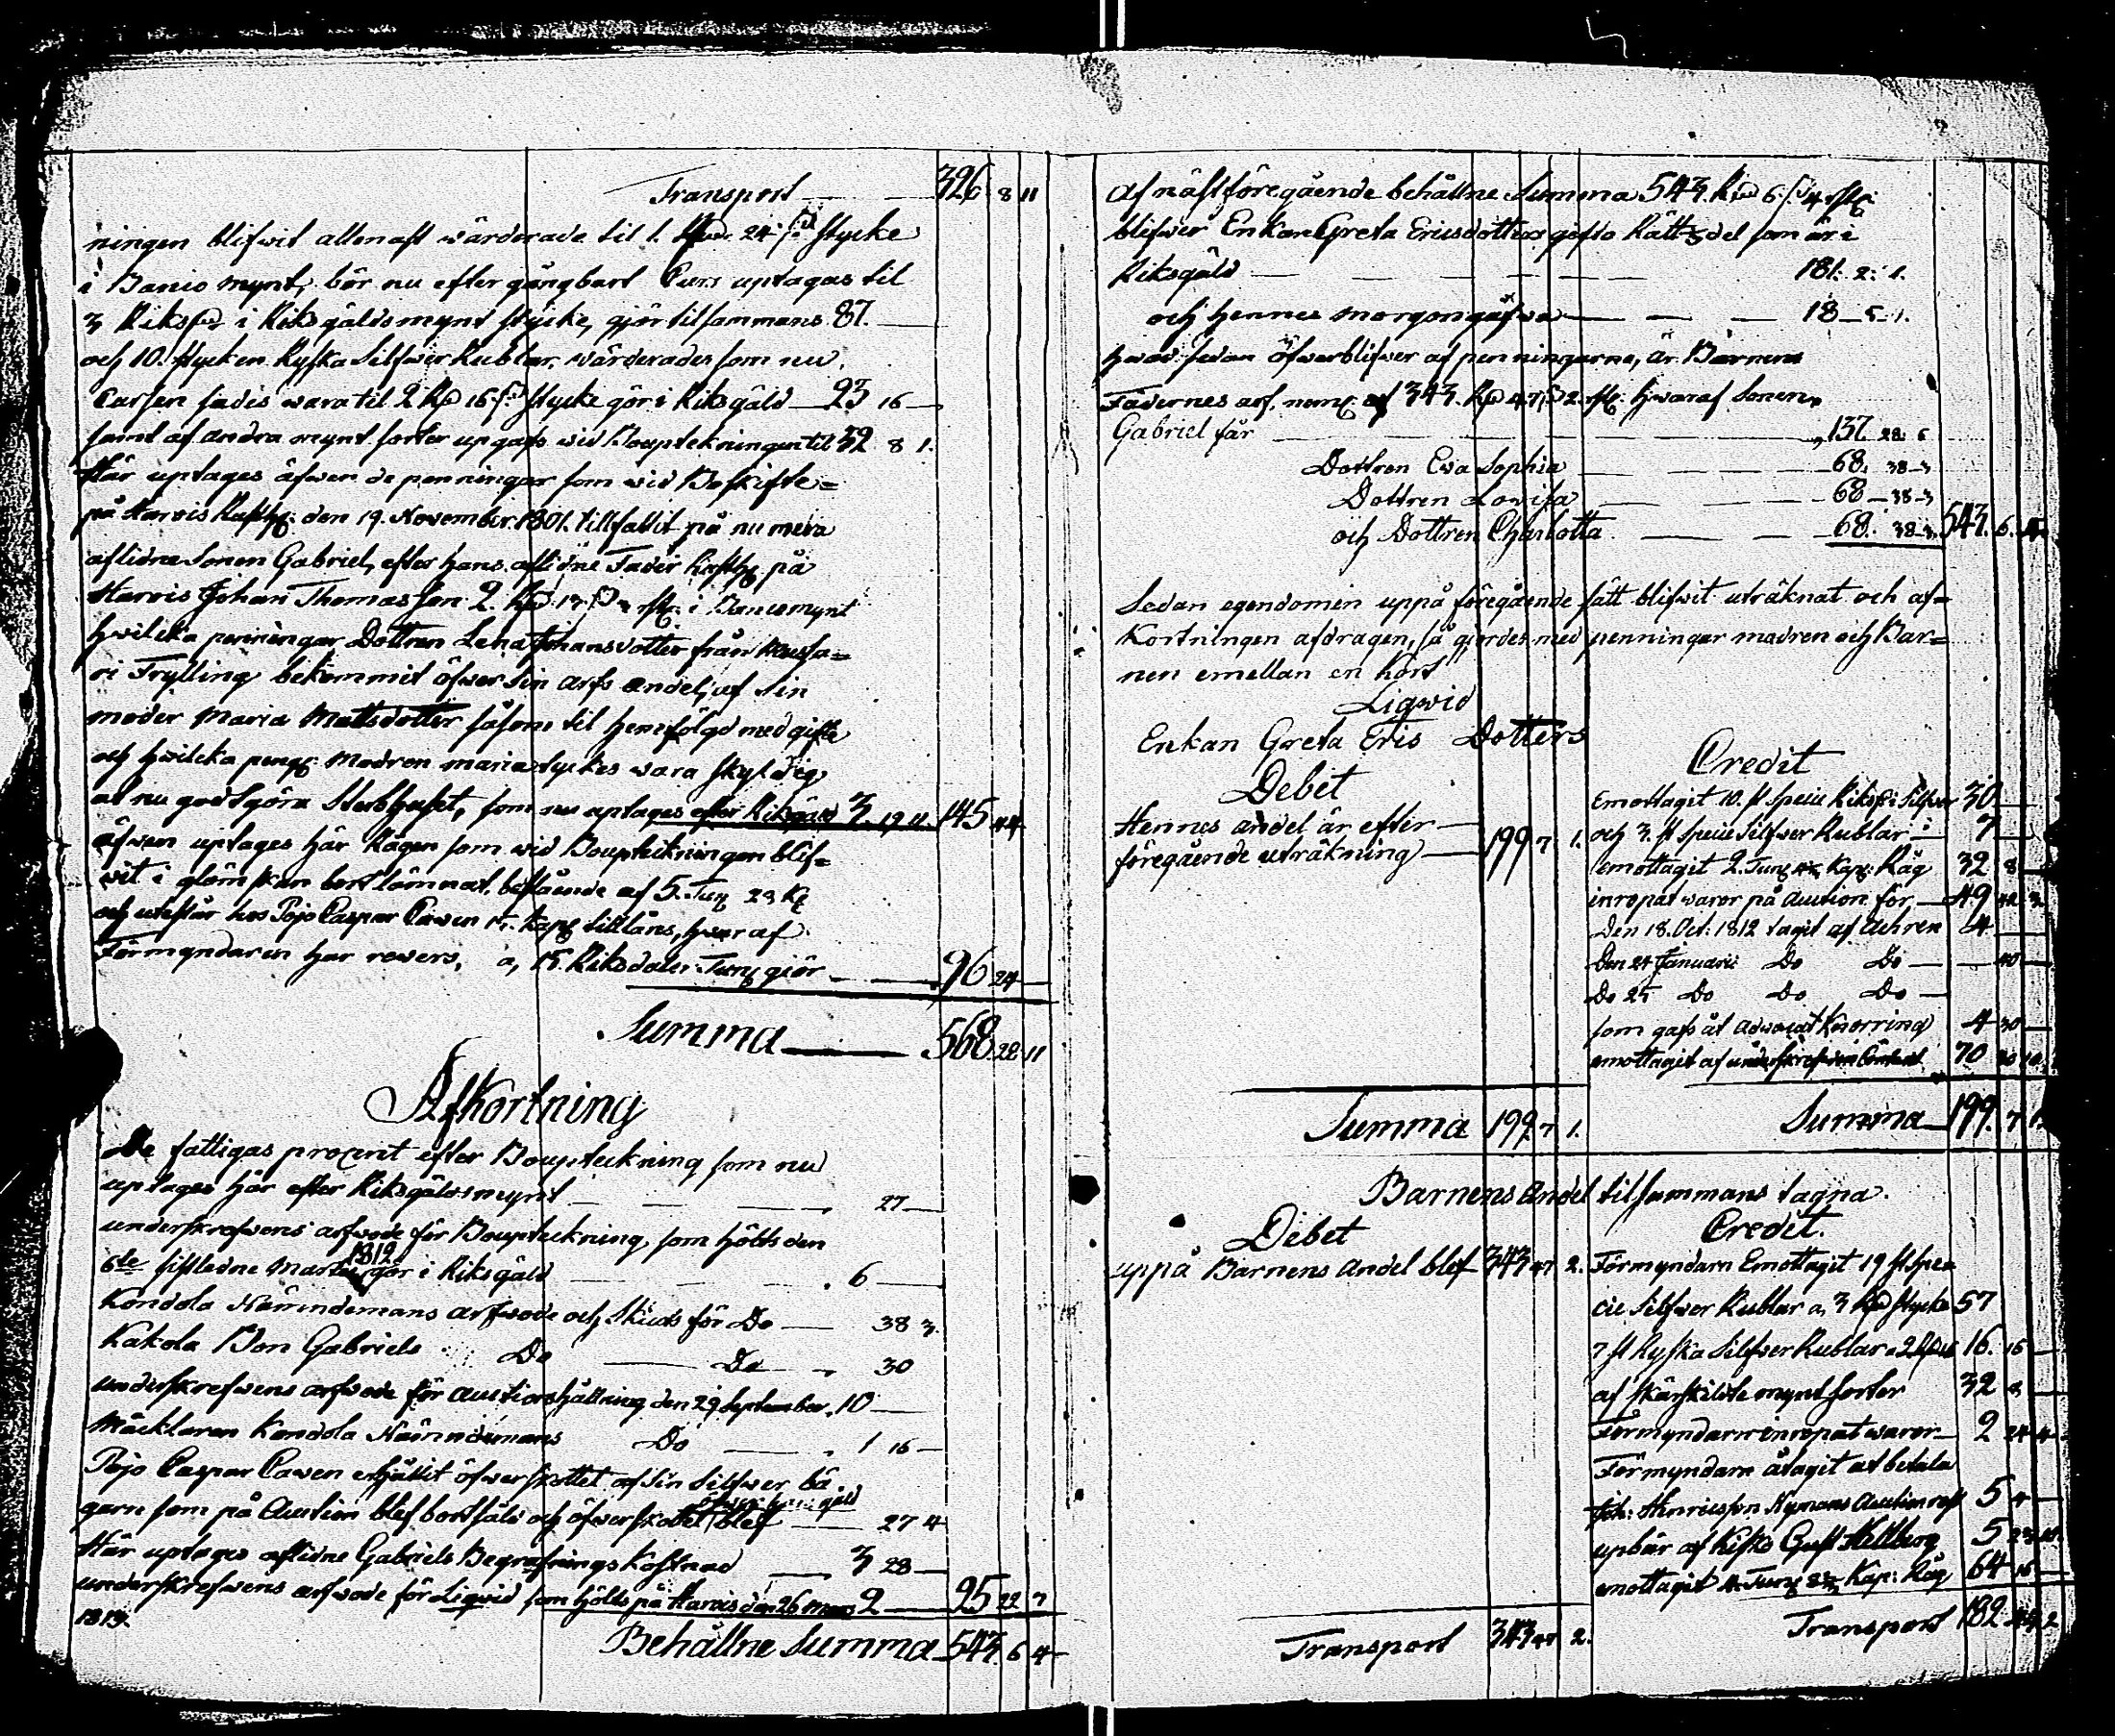 Transport 326 8 11
ningen blifwit allenast wärderade til 1. Rd 24 s. stycke
i Banco mynt, bör nu efter gångbart Curs uptagas til
3 Riksd i Riksgäldsmynt stycke, gjör tilsammans 87.
och 10. stycken Ryska Silfwer Rublar, wärderades som nu
Cursen sades wara til 2 Rd 16 s. stycke gör i Riksgäld 23 16
samt af andra mynt sorter upgafs wid Bouptekningen til 32 8 1.
Här uptages äfwen de penningar som wid Boskifte=
på Harvis den 19. November 1801. tillfallit på nu mera
aflidne Sonen Gabriel, efter hans aflidne Fader på
Harvis Johan Thomasson 2. Rd i Bancomynt
hwilcka penningar, Dottren Lena Johansdotter från
ri Frylling bekommit öfwer sin arfs andel, af sin
moder Maria Mattsdotter såsom til hemfölgd med gifte
och hwilcka peng: Modren Maria tyckes wara skyldig
at nu godtgöra Sterbhuset, som nu uptages efter Riksgäld 3. 19 11. 145 44
äfwen uptages här Rågen som wid Bouptekningen blif=
wit i glömskan bort lämnat, bestående af 5. Tun 23 K
och utestår hos Pojo Caspar Cawen 15. Kap tillåns, hwaraf
Förmyndaren har revers, a, 15. Riksdaler Tun giör 96 24
Summa 568 28 11
Afkortning
De fattigas procent efter Bouptekning som nu
uptages här efter Riksgäldsmynt 27
underskrefwens arfwode för Bouptekning, som hölts den
6te sistledne Martii 1812 gör i Riksgäld 6
Kondola Nämndemans arfwode och Skuds för Do 38 3.
Kakola Bon Gabriels Do Do 30
underskrefwens arfwode för auctionshållning den 29 September 10
Mäcklaren Kondola Nämndemans Do 1 16
Pojo Caspar Cawen erhållit öfwerskottet af sin Silfwer bä
garn som på Auction blef bortsåld och öfwerskottet blef 27 4
Här uptages aflidne Gabriels Begrafnings Kostnad 3 28
underskrefwens arfwode för Liqwid som hölts på Harvis den 26 Mars 2 25 22 7
1813.
Behållne Summa 543 6 4
Af nästföregående behållne Summa 543. Rd 6. s. 4
blifwer Enkan Greta Ericsdotters gifto Rätts del som är i
Riksgäld 181. 2. 1.
och hennes morgongåfwa 18 5 1.
hwad sedan öfwerblifwer af penningarne, är Barnens
Fädernes arf, neml: 343. Rd 47 s 2. hwaraf Sonen
Gabriel får 137 28 6
Dottren Eva Sophia 68. 38 3
Dottren Lowisa 68 38 3
och Dottren Charlotta 68. 38 3. 543. 6. 4.
Sedan egendomen uppå föregående sätt blifwit uträknat och af=
Kortningen afdragen, så gjordes med penningar modren och Bar=
nen emellan en kort
Liqwid
Enkan Greta Eris Dotters
Debet
Credit
Hennes andel är efter
föregående uträkning 199 7 1.
Emottagit 10. st Specie Riksd i Silfwer 30
och 3. st Specie Silfwer Rublar 7
emottagit 2. Tun Kap: Råg 32 8
inropat waror på Auction för 49 42 3
Den 18. Oct: 1812 tagit af Achren 4
Den 24 Januarii Do Do 40
Do 25 Do Do Do
som gafs åt Advocat Knorring 4 30
emottagit af 70
Summa 199. 7 1.
Summa 199. 7 1.
Barnens Andel tilsammans tagna.
Debet
Credit.
uppå Barnens Andel blef 343 47 2.
Förmyndarn Emottagit 19 st Spe
cie Silfwer Rublar a, 3 Rd stycke 57
7 st Ryska Silfwer Rublar a 2 Rd 16 16. 16
af särskildte mynt sorter 32 8
Förmyndarn inropat waror 2 24 4
Förmyndarn åtagit at betala
Joh: Henricsson Nymans Auction 5 4
upbär af Kisko Gust Hellberg 5
emottagit 4. Tun Kap: Råg 64 16
Transport 343 47 2.
Transport 182 2